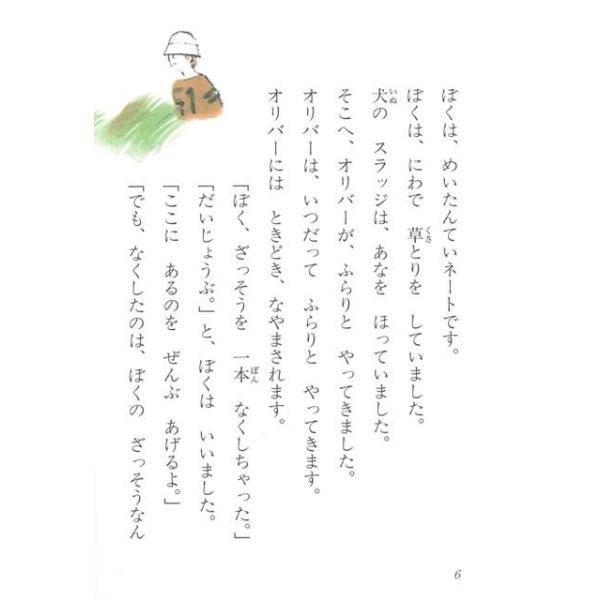 ぼくは、めいたんていネートです。
ぼくは、にわで 草とりを していました。
犬の スラッジは、あなを ほっていました。
そこへ、オリバーが、ふらりと やってきました。
オリバーは、いつだって ふらりと やってきます。
オリバーには ときどき、なやまされます。
「ぼく、ざっそうを 一本 なくしちゃった。」
「だいじょうぶ。」と、ぼくは いいました。
「ここに あるのを ぜんぶ あげるよ。」
「でも、なくしたのは、ぼくの ざっそうなん
6